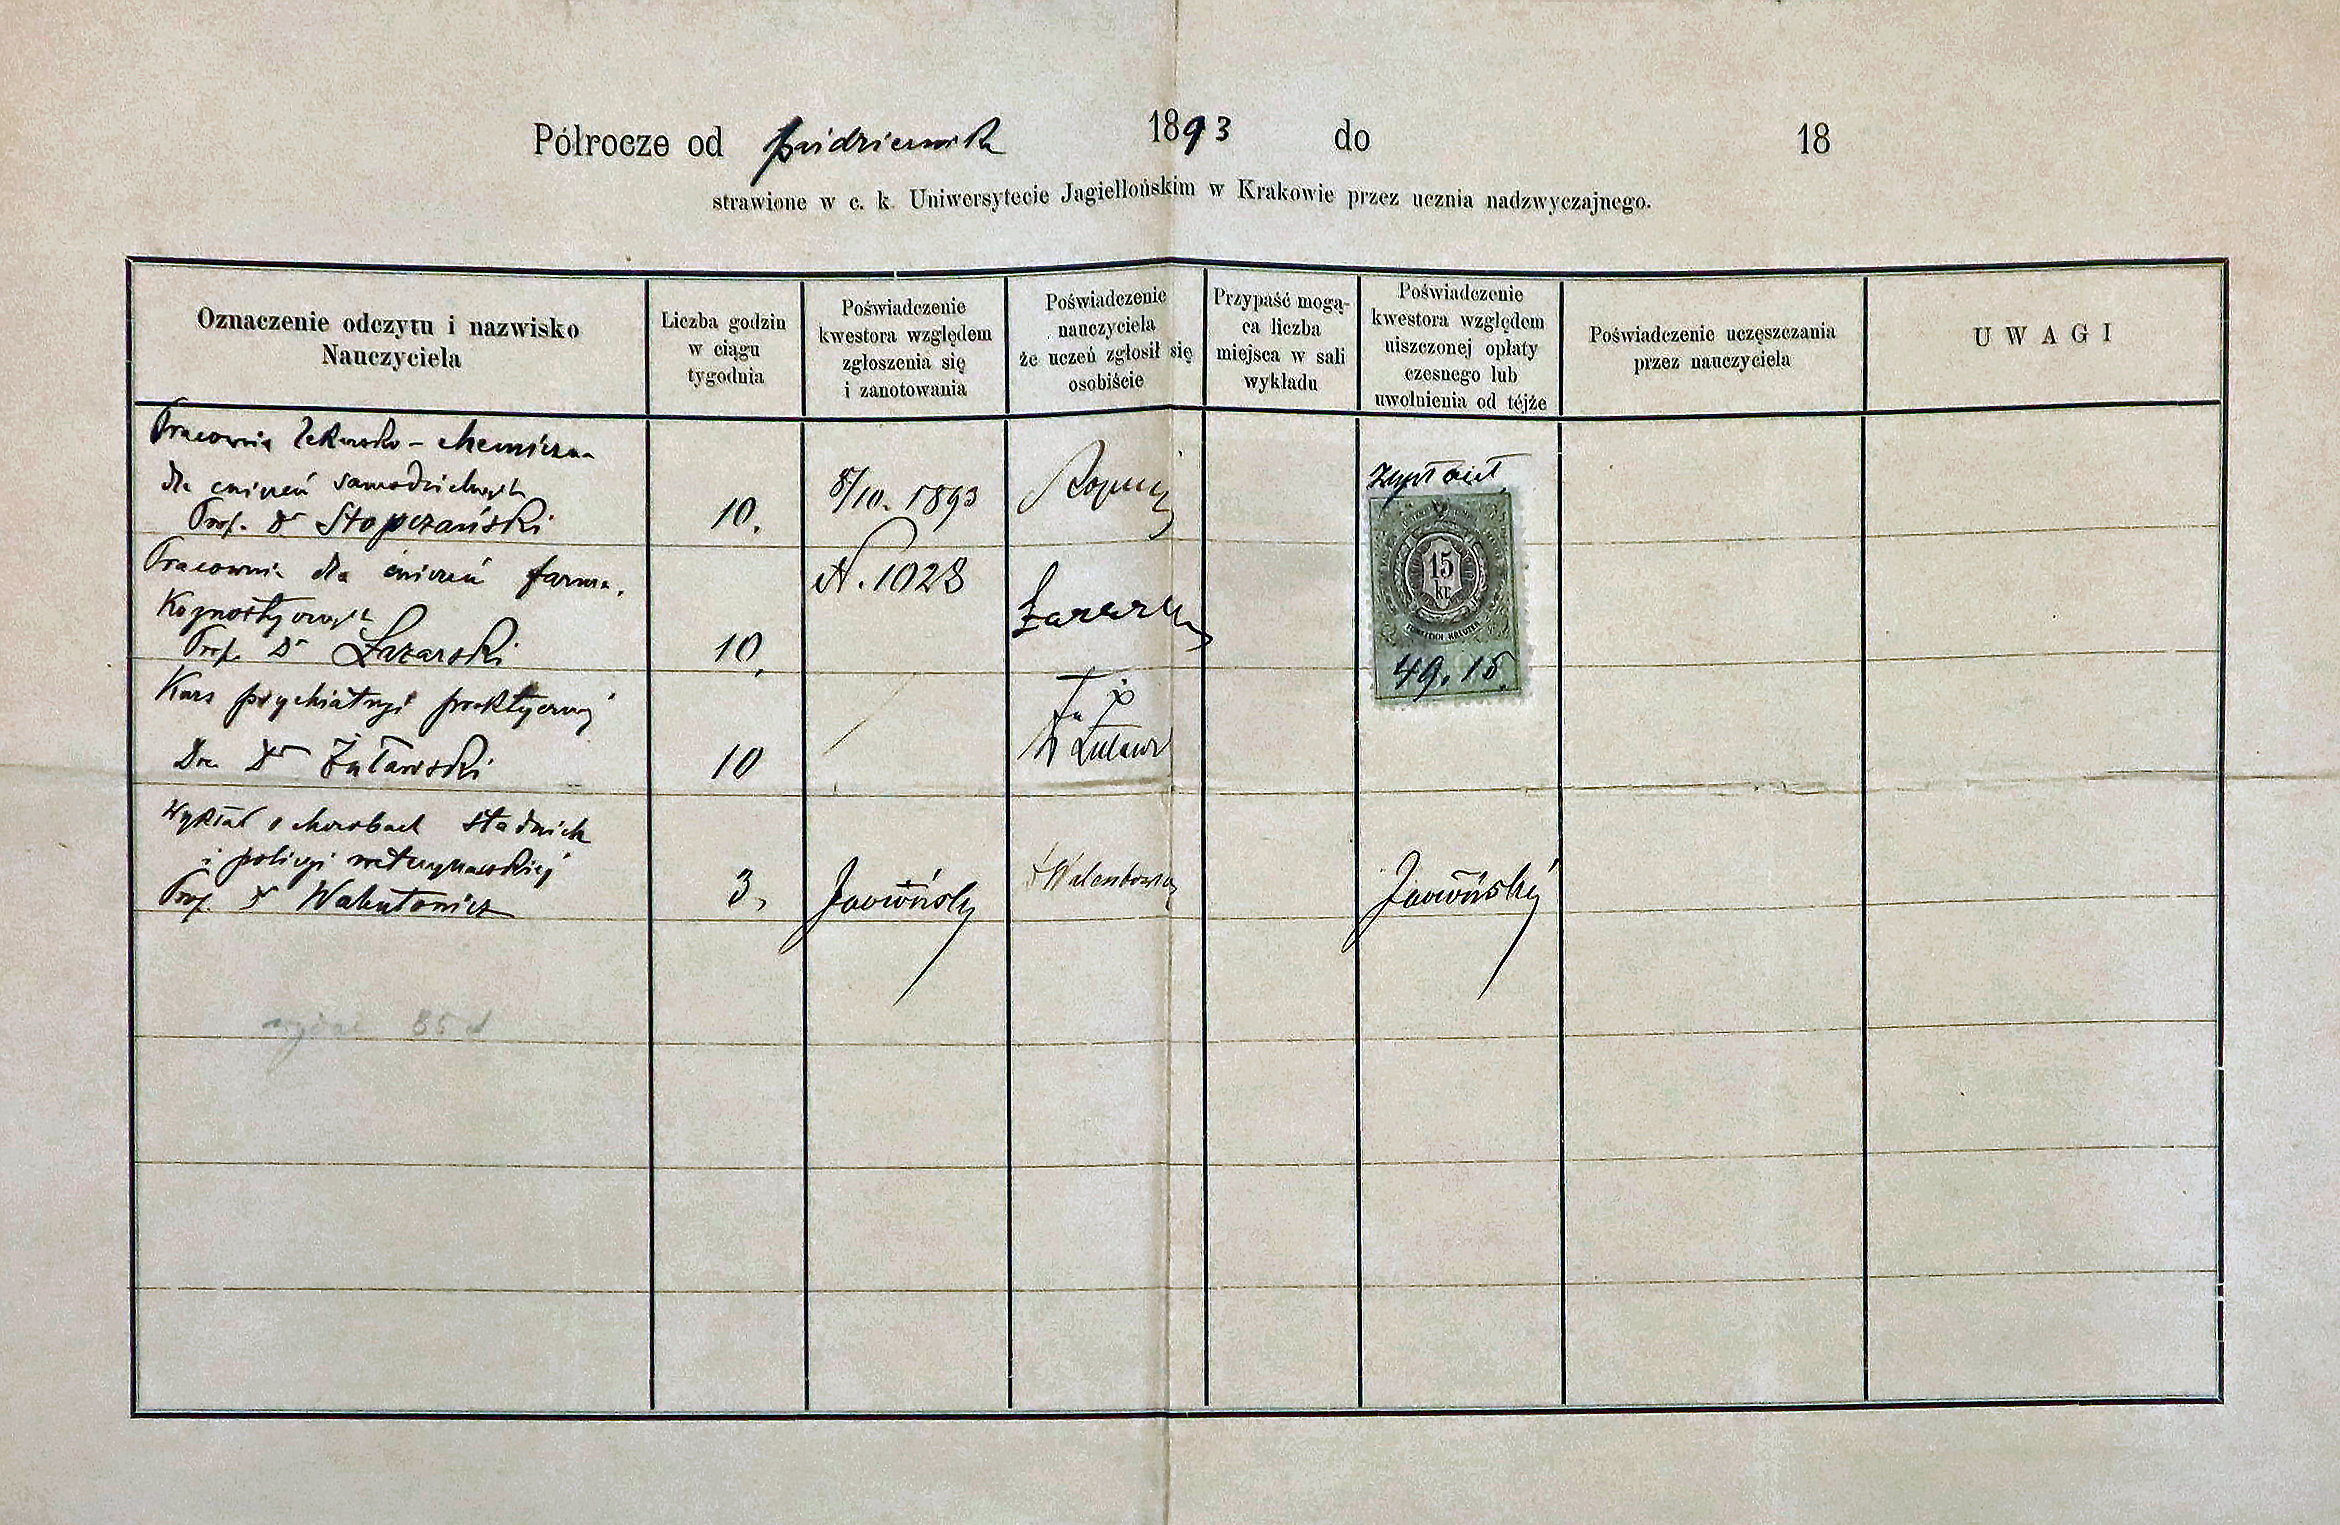 Półrocze od października 1893 do 18
strawione w c. k. Uniwersytecie Jagiellońskim w Krakowie przez ucznia nadzwyczajnego.
Oznaczenie odczytu i nazwisko
Nauczyciela
Liczba godzin
w ciągu
tygodnia
Poświadczenie
kwestora względem
zgłoszenia się
i zanotowania
Poświadczenie
nauczyciela
że uczeń zgłosił się
osobiście
Przypaść mogą-
ca liczba
miejsca w sali
wykładu
Poświadczenie
kwestora względem
uiszczonej opłaty
czesnego lub
uwolnienia od téjże
Poświadczenie uczęszczania
przez nauczyciela
UWAGI
Pracownia lekarsko-chemiczna
dla ćwiczeń samodzielnych
Prof. Dr Stopczański
10.
8/10. 1893
zapłacił
Pracownia dla ćwiczeń farma-
kognostycznych
Prof. Dr Łazarski
10.
N. 1028
Łazarski
15
kr.
49.15.
Kurs psychiatryi praktycznej
Doc. Dr Żuławski
10
Wykład o chorobach stadnich
i policyi weterynarskiej
Prof. Dr Walentowicz
3.
Dr Walentowicz
85